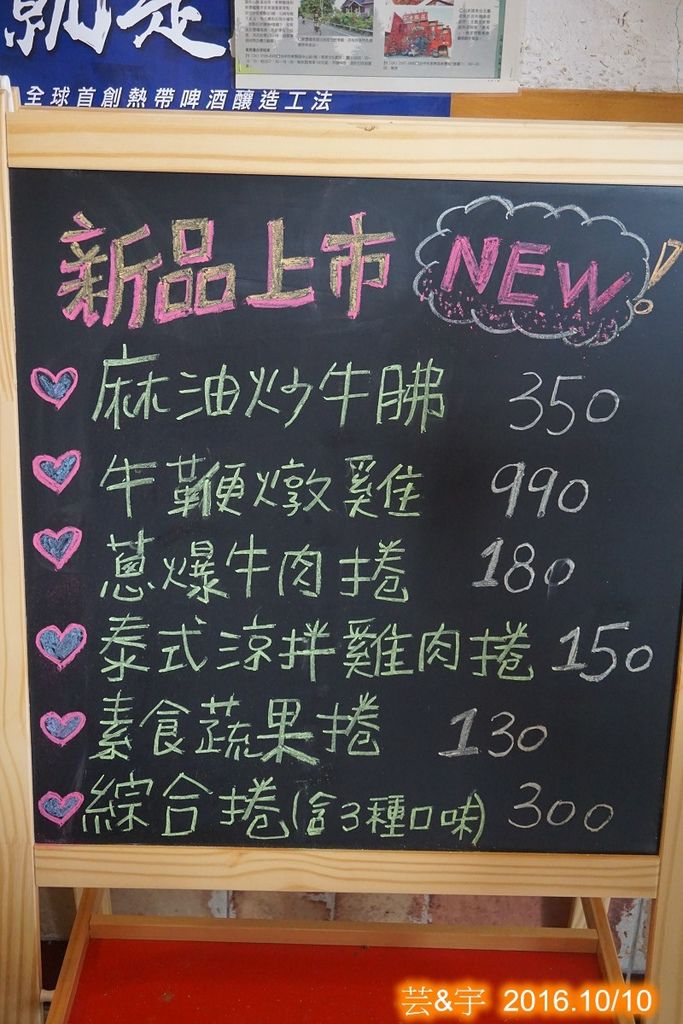 就是
全球首創熱帶啤酒釀造工法
新品上市 NEW!
麻油炒牛胇 350
牛鞭燉雞 990
蔥爆牛肉捲 180
泰式涼拌雞肉捲 150
素食蔬果捲 130
綜合捲(含3種口味) 300
芸&宇 2016.10/10